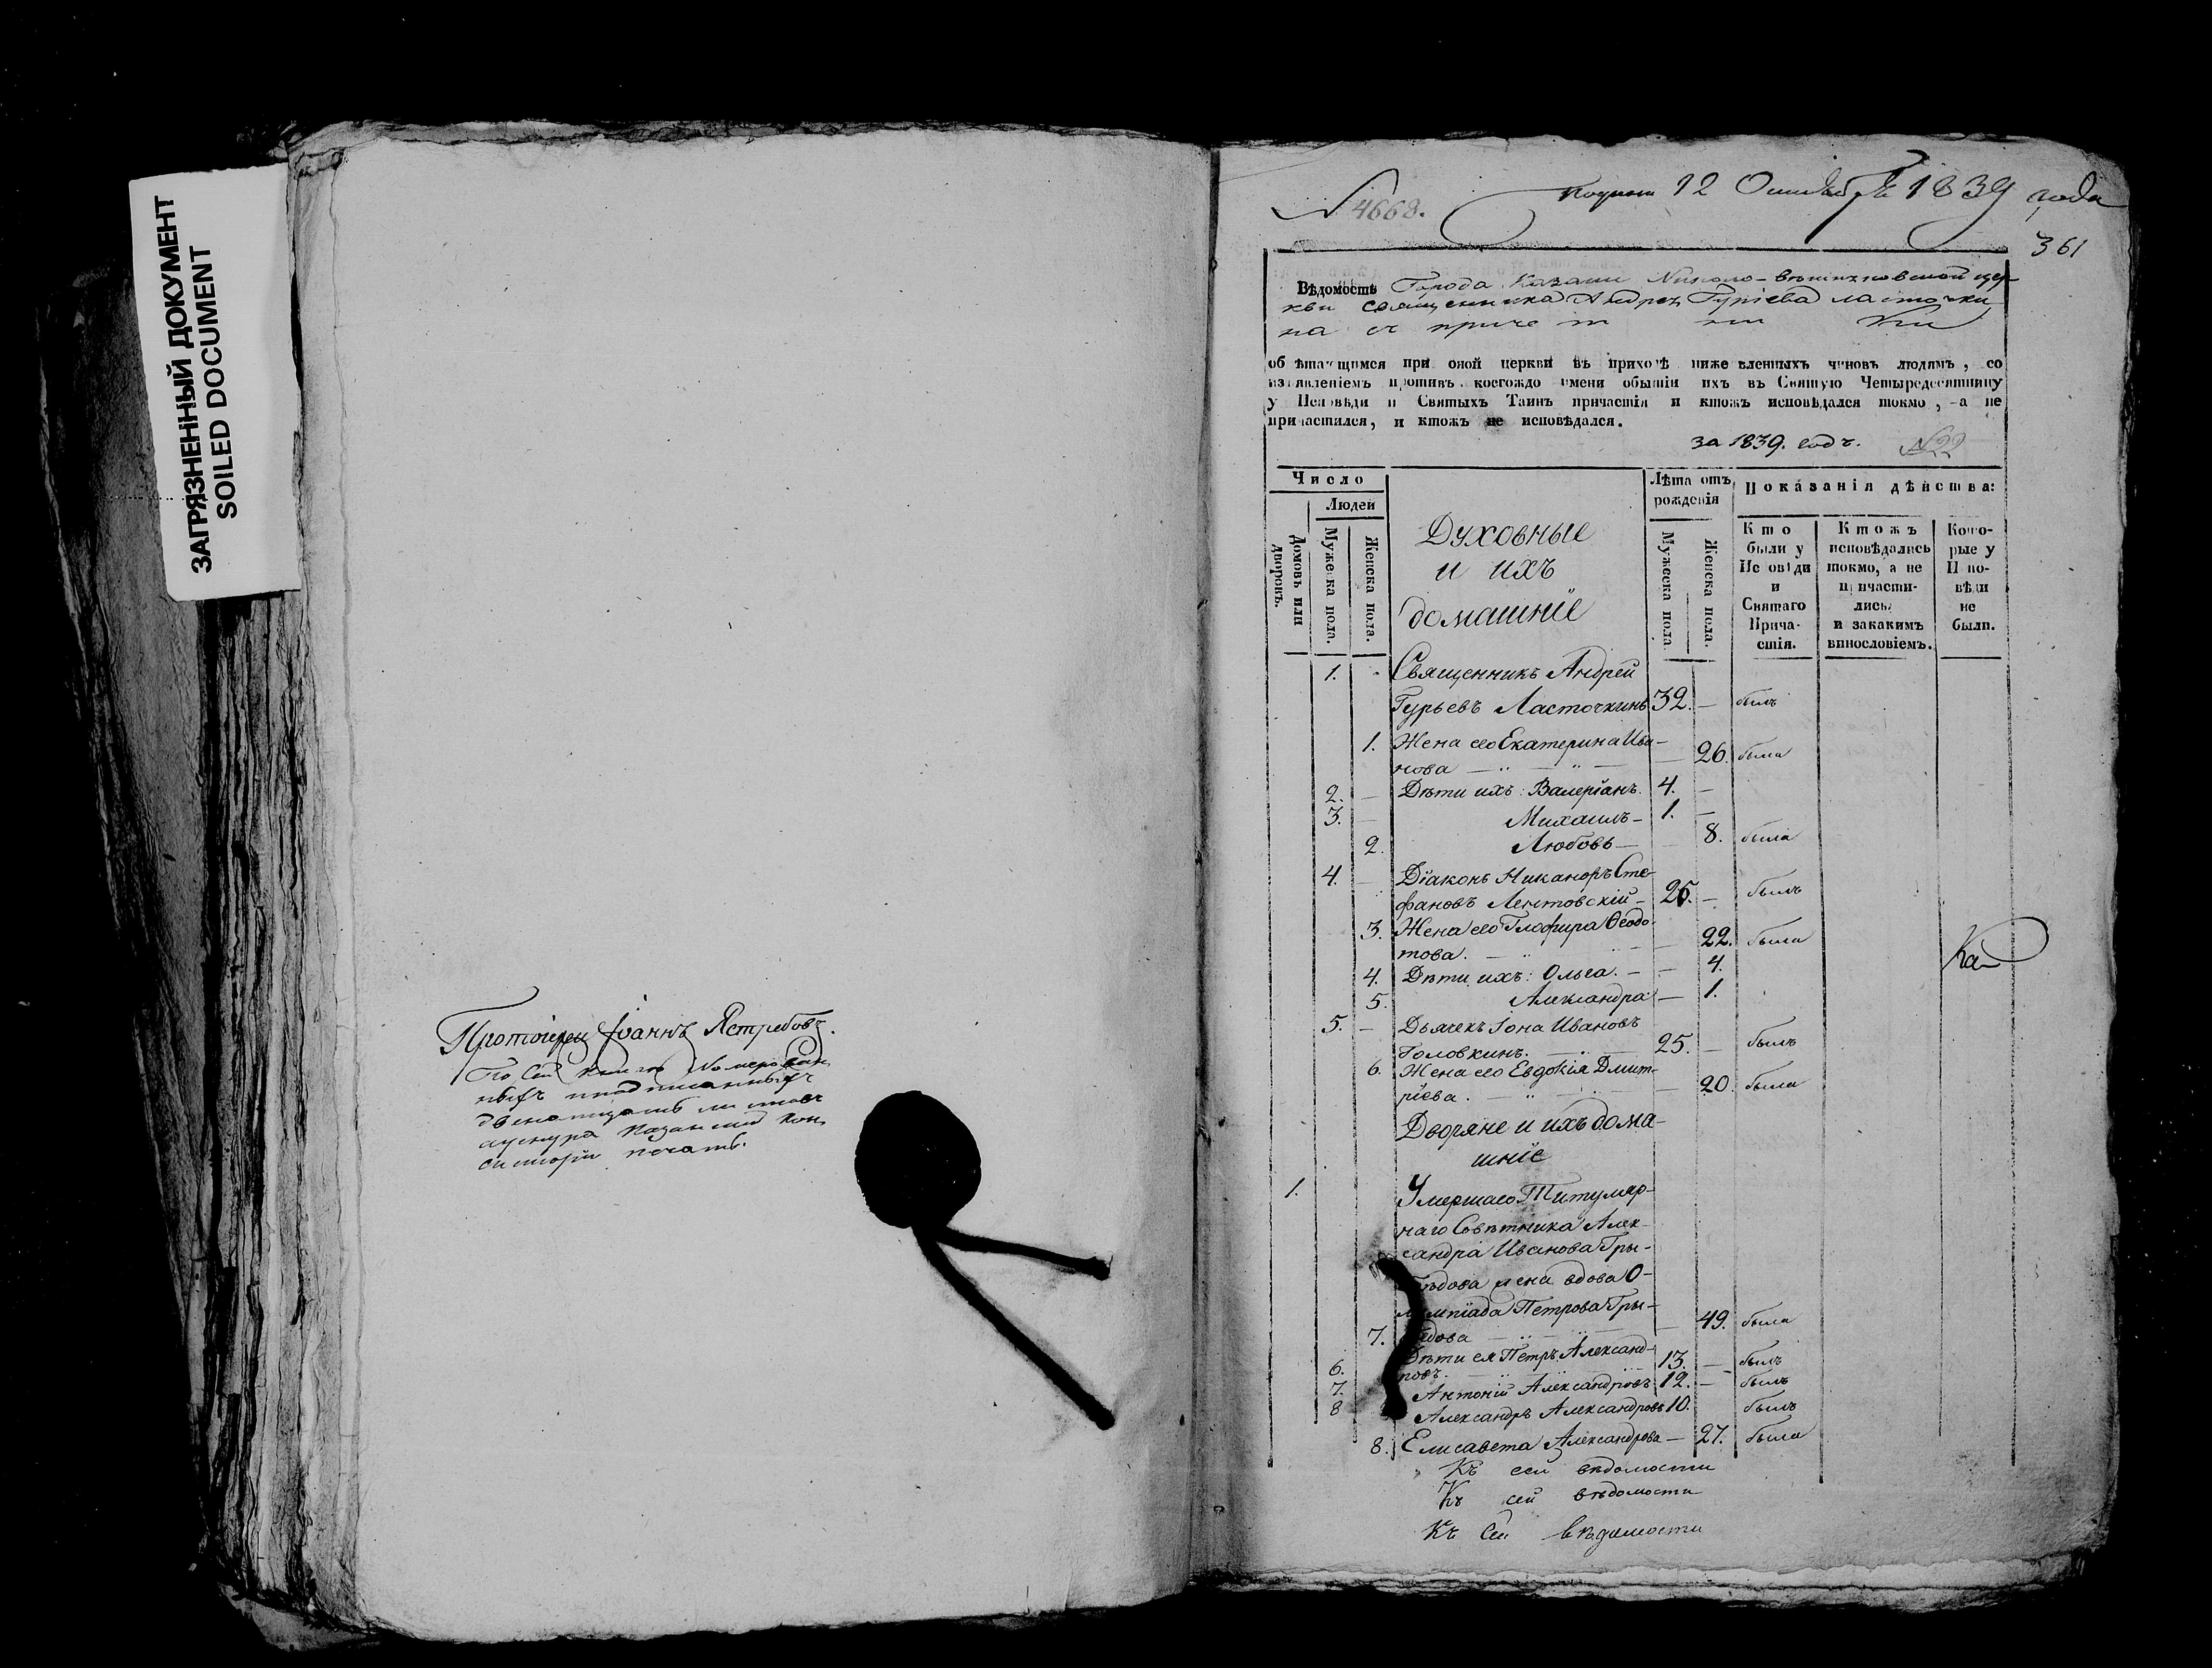 ЗАГРЯЗНЕННЫЙ ДОКУМЕНТ
SOILED DOCUMENT
Протоіерей Іоаннъ Ястребовъ.
По сей книгѣ номерован-
ныхъ
двенатцать листовъ
Казанской Кон-
систоріи печать.
№ 4668.
12 Октября 1839 года
361
Вѣдомость Города Казани Николо-Вешняковской цер-
кви священника Андрея Гуріева Ласточки-
на съ причетники
обрѣтающимся при оной церкви въ приходѣ нижеявленныхъ чиновъ людямъ, со
изъявленіемъ противъ коегождо имени бытія ихъ въ Святую Четыредесятницу
у Исповѣди и Святыхъ Таинъ причастія и ктожъ исповѣдался токмо, а не
причастился, и ктожъ не исповѣдался.
за 1839. годъ. №22
Число
Людей
Домовъ или дворовъ.
Мужеска пола.
Женска пола.
Духовные
и ихъ
домашніе
Лѣта отъ рожденія
Мужеска пола
Женска пола.
Показанія дѣйства:
Кто были у Исповѣди и Святаго Прича-стія.
Ктожъ исповѣдались токмо, а не причасти-лись и закакимъ винословіемъ.
Кото-рые у Испо-вѣди не были.
1. Священникъ Андрей
Гурьевъ Ласточкинъ 32. — былъ
1. Жена его Екатерина Ива-
нова — 26. была
2. — Дѣти ихъ: Валеріанъ. 4. —
3. — Михаилъ — 1. —
2. Любовь — 8. была
4. — Діаконъ Никаноръ Сте-
фановъ Лентовскій — 25. — былъ
3. Жена его Глафира Ѳеодо-
това. — 22. была
4. Дѣти ихъ: Ольга. — 4.
5. Александра — 1.
Ка
5. — Дьячекъ Іона Ивановъ
Головкинъ. 25. — былъ
6. Жена его Евдокія Дмит-
ріева. — 20. была
Дворяне и ихъ дома-
шніе
1. Умершаго Титуляр-
наго Совѣтника Алек-
сандра Иванова Гры-
бѣдова жена вдова О-
лимпіада Петрова Гры-
7. бѣдова — 49. была
Дѣти ея Петръ Александ-
6. ровъ. 13. — былъ
7. Антоній Александровъ 12. — былъ
8 Александръ Александровъ 10. былъ
8. Елисавета Александрова — 27. была
Къ сей вѣдомости
Къ сей вѣдомости
Къ сей вѣдомости